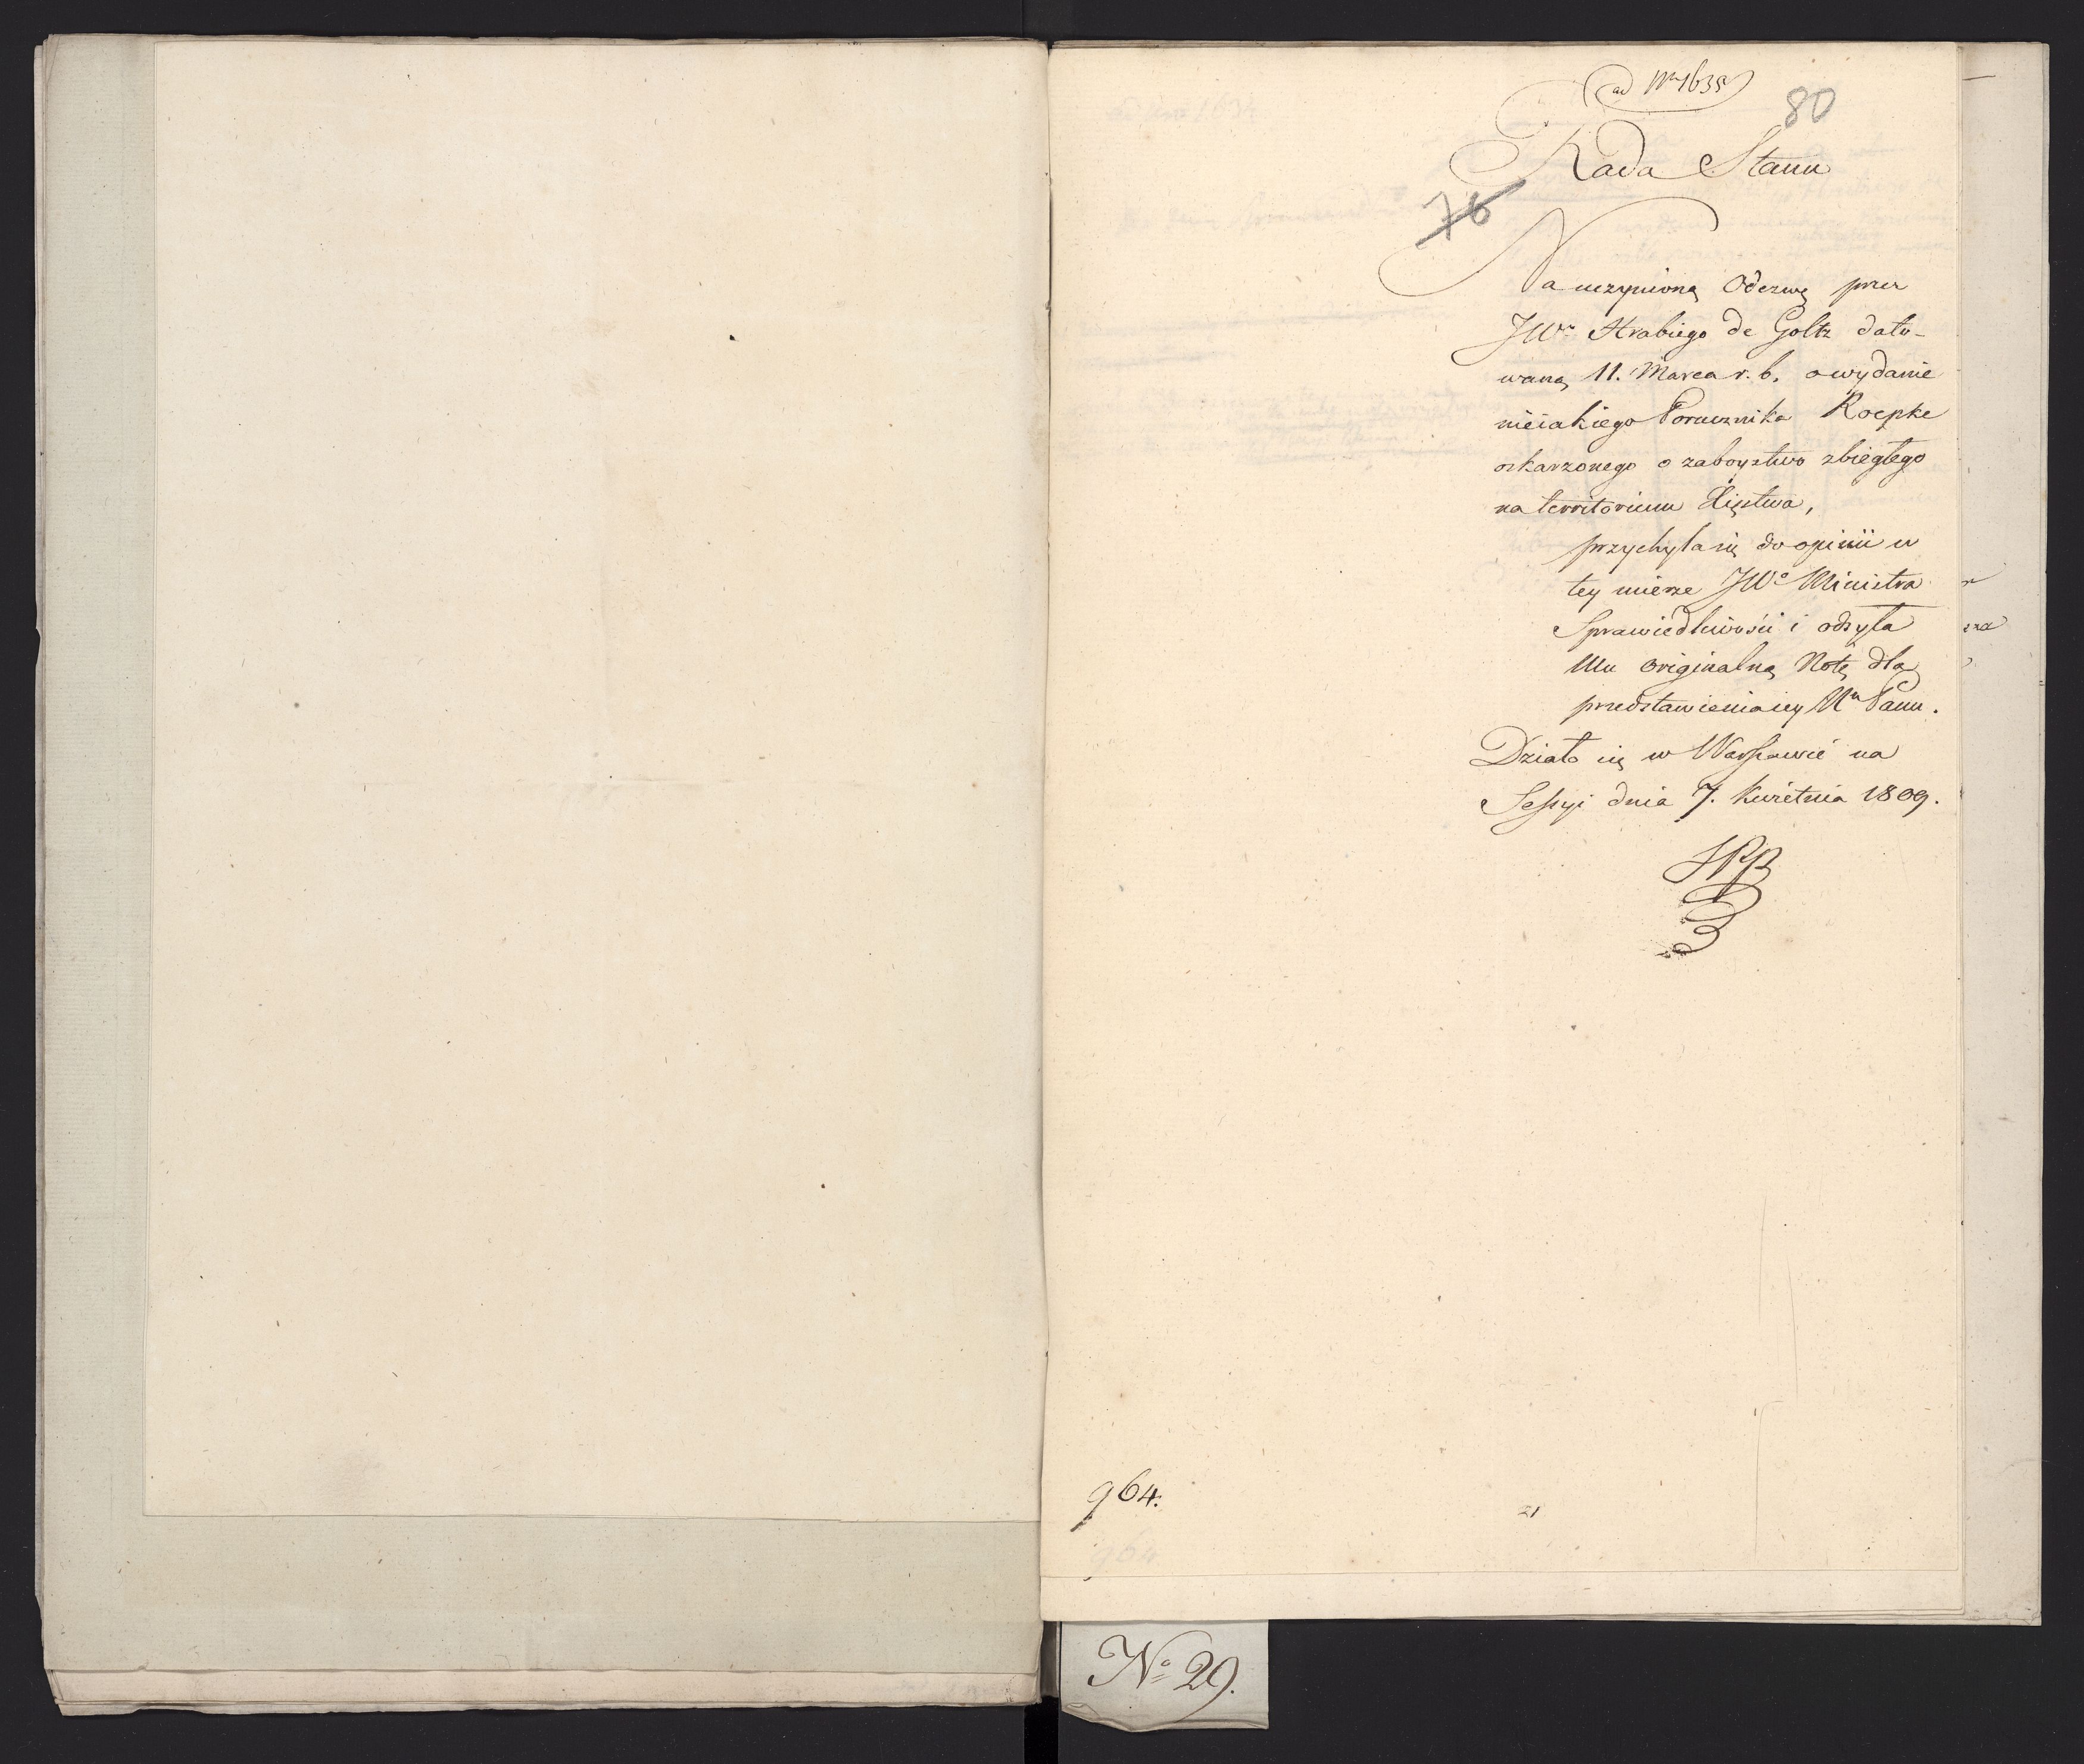 ad Nr 1635
80
Rada Stanu
76
Na uczynioną Odezwę przez
JWo Hrabiego de Goltz dato-
waną 11. Marca r. b. o wydanie
nieiakiego Porucznika Roepke
oskarzonego o zaboystwo zbiegłego
na territorium Xięstwa,
przychyla się do opinii w
tey mierze JWo Ministra
Sprawiedliwości i odsyła
Mu originalną Notę dla
przedstawienia iey Nu Panu.
Działo się w Warszawie na
Sessyi dnia 7. Kwietnia 1809.
964.
21
No 29.